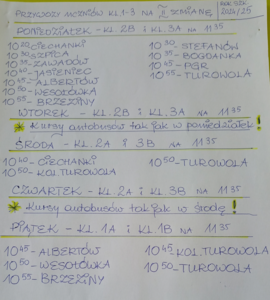 PRZYWOZY UCZNIÓW KL 1-3 NA II ZMIANĘ ROK SZK. 2024/25
PONIEDZIAŁEK - KL. 2B i KL. 3A na 11 35
10 20 CIECHANKI
10 30 SZPICA
10 35 ZAWADÓW
10 40 JASIENIEC
10 45 ALBERTÓW
10 50 WESOŁÓWKA
10 55 BRZEZINY
10 30 - STEFANÓW
10 35 - BOGDANKA
10 45 - PGR
10 55 - TUROWOLA
WTOREK - KL. 2B i KL. 3A na 11 35
* Kursy autobusów tak jak w poniedziałek!
ŚRODA - KL. 2A i 3B na 11 35
10 40 - CIECHANKI
10 50 - KOL. TUROWOLA
10 50 - TUROWOLA
CZWARTEK - KL. 2A i KL 3B na 11 35
* Kursy autobusów tak jak w środę!
PIĄTEK - KL. 1A i KL 1B NA 11 35
10 45 - ALBERTÓW
10 50 - WESOŁÓWKA
10 55 - BRZEZINY
10 45 KOL. TUROWOLA
10 50 - TUROWOLA